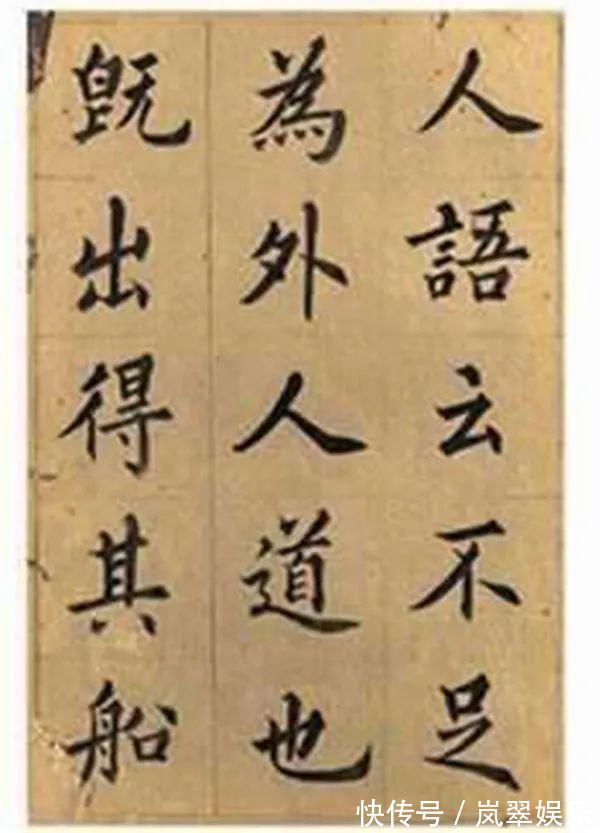 人語云不足
為外人道也
既出得其船
快传号/岚翠娱乐